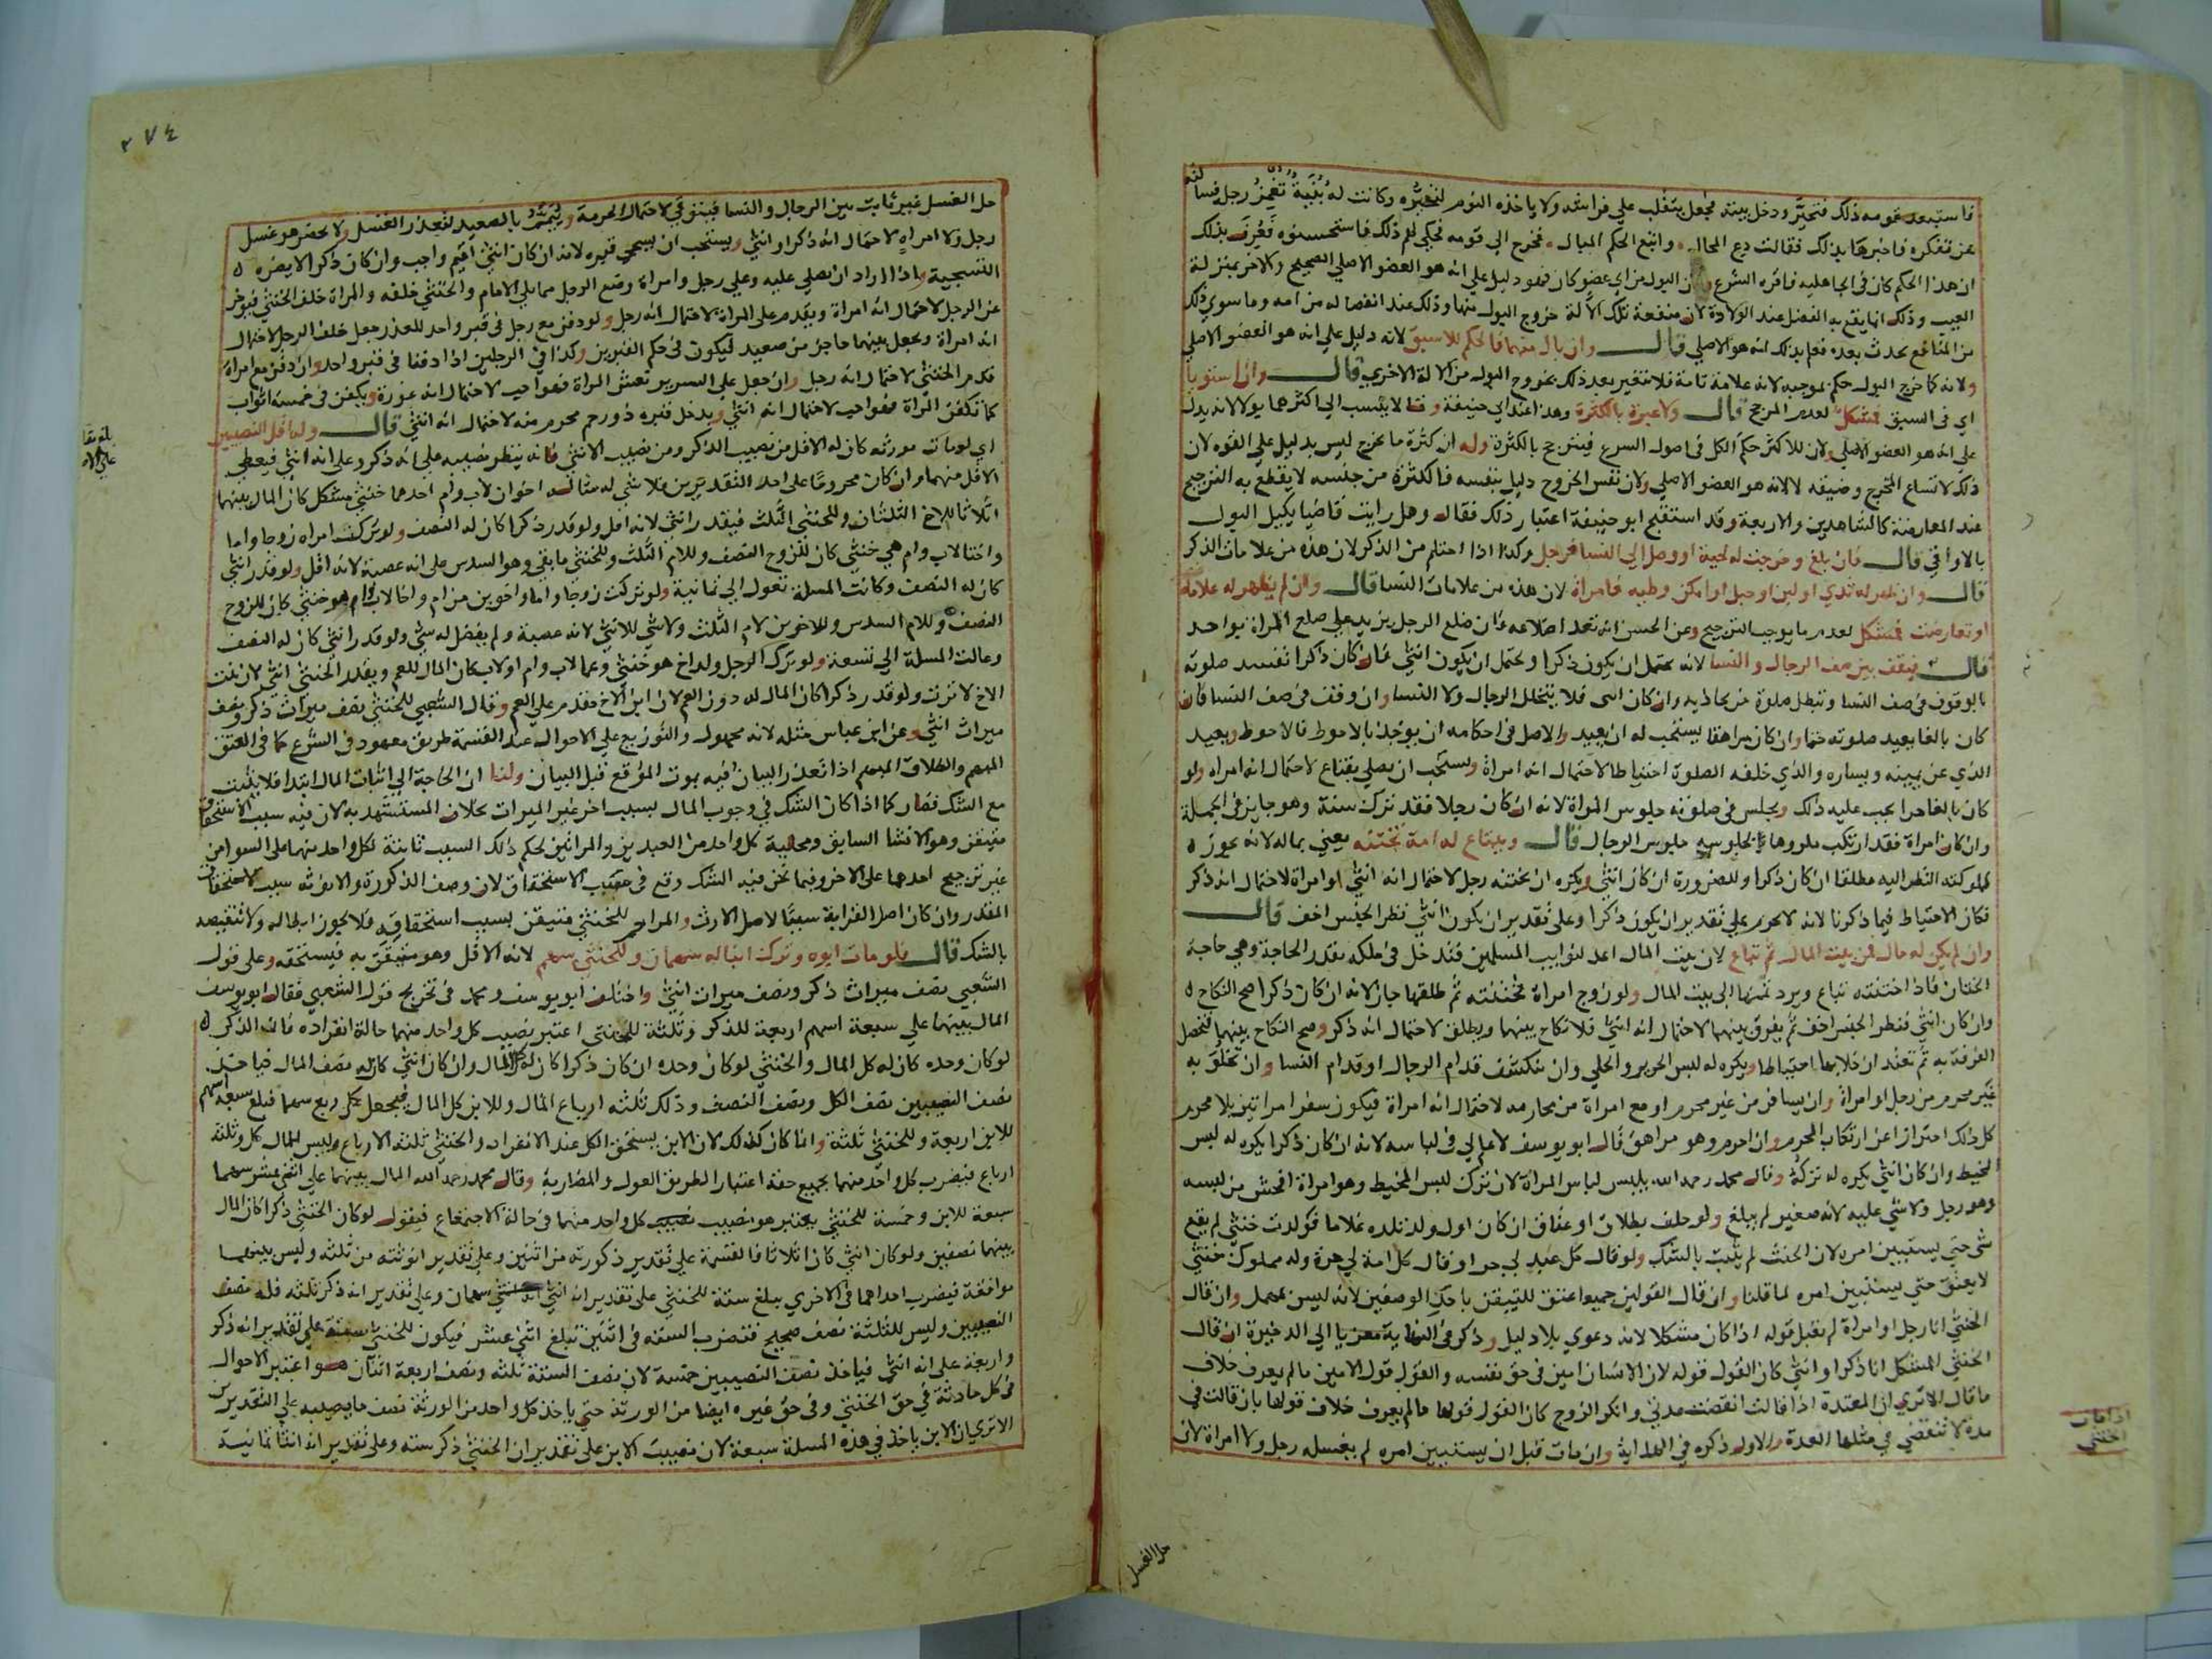 فاستبعد قومه ذلك فتحير ودخل بيته فجعل يتقلب على فراشه ولا ياخذه النوم لتحيره وكانت له بُنَيّة تغمز رجليه فسالته
عن تفكره فاخبرها بذلك فقالت دع المحال واتبع الحكم المبال فخرج الى قومه فحكى لهم ذلك فاستحسنوه فعرف بذلك
ان هذا الحكم كان في الجاهلية فاقره الشرع ولان البول من اي عضو كان فهو دليل على انه هو العضو الاصلي الصحيح والاخر بمنزلة
العيب وذلك انما يقع به الفصل عند الولادة لان منفعة تلك الآلة خروج البول منها وذلك عند انفصاله من امه وما سوي ذلك
من المنافع يحدث بعده فعلم بذلك انه هو الاصلي قال وان بال منهما فالحكم للاسبق لانه دليل على انه هو العضو الاصلي
ولانه كما خرج البول حكم بموجبه لانه علامة تامة فلا يتغير بعد ذلك بخروج البول من الالة الاخري قال وان استويا
اي في السبق فمشكل لعدم المرجح قال ولا عبرة بالكثرة وهذا عند ابي حنيفة وقالا ينسب الى اكثرهما بولا لانه يدل
على انه هو العضو الاصلي ولان للاكثر حكم الكل في اصول الشرع فيترجح بالكثرة وله ان كثرة ما يخرج ليس بدليل على القوة لان
ذلك لاتساع المخرج وضيقه لا لانه هو العضو الاصلي ولان نفس الخروج دليل بنفسه فالكثرة من جنسه لا يقطع به الترجيح
عند المعارضة كالشاهدين والاربعة وقد استقبح ابو حنيفة اعتبار ذلك فقال وهل رايت قاضيا يكيل البول
بالاواقي قال فان بلغ وخرجت له لحية او وصل الى النسا فرجل وكذا اذا احتلم من الذكر لان هذه من علامات الذكر
قال وان ظهر له ثدي او لبن او حبل او امكن وطيه فامراة لان هذه من علامات النسا قال وان لم يظهر له علامة
او تعارضت فمشكل لعدم ما يوجب الترجيح وعن الحسن انه تعد اضلاعه فان ضلع الرجل يزيد على ضلع المراة بواحد
قال فيقف بين صف الرجال والنسا لانه يحتمل ان يكون ذكرا ويحتمل ان يكون انثى فان كان ذكرا تفسد صلوته
بالوقوف في صف النسا وتبطل صلوة من يحاذيه وان كان انثى فلا يتخلل الرجال ولا النسا وان وقف في صف النسا فان
كان بالغا يعيد صلوته حتما وان كان مراهقا يستحب له ان يعيد والاصل في احكامه ان يؤخذ بالاحوط فالاحوط ويعيد
الذي عن يمينه ويساره والذي خلفه الصلوة احتياطا لاحتمال انه امراة ويستحب ان يصلي بقناع لاحتمال انه امراة ولو
كان بالغا حرا يجب عليه ذلك ويجلس في صلوته جلوس المراة لانه ان كان رجلا فقد ترك سنة وهو جايز في الجملة
وان كان امراة فقد ارتكب مكروها بجلوسه جلوس الرجال قال ويبتاع له امة تختنه يعني بماله لانه يجوز
لمملوكته النظر اليه مطلقا ان كان ذكرا وللضرورة ان كان انثى ويكره ان يختنه رجل لاحتمال انه انثى او امراة لاحتمال انه ذكر
فكان الاحتياط فيما ذكرنا لانه لا يحرم على تقدير ان يكون ذكرا وعلى تقدير ان يكون انثى نظر الجنس اخف قال
وان لم يكن له مال فمن بيت المال ثم تباع لان بيت المال اعد لنوايب المسلمين فتدخل في ملكه بقدر الحاجة وهي حاجة
الختان فاذا اختتنته تباع ويرد ثمنها الى بيت المال ولو زوج امراة فختنته ثم طلقها جاز لانه ان كان ذكرا صح النكاح
وان كان انثى فنظر الجنس اخف ثم يفرق بينهما لاحتمال انه انثى فلا نكاح بينهما ويطلق لاحتمال انه ذكر وصح النكاح بينهما فتحصل
الفرقة به ثم تعتد ان خلا بها احتياطا ويكره له لبس الحرير والحلي وان ينكشف قدام الرجال او قدام النسا وان يخلو به
غير محرم من رجل او امراة وان يسافر من غير محرم او مع امراة من محارمه لاحتمال انه امراة فيكون سفر امراتين بلا محرم
كل ذلك احترازا عن ارتكاب المحرم وان احرم وهو مراهق قال ابو يوسف لا علم لي في لباسه لانه ان كان ذكرا يكره له لبس
المخيط وان كان انثى يكره له تركه وقال محمد رحمه الله يلبس لباس المراة لان ترك لبس المخيط وهو امراة افحش من لبسه
وهو رجل ولا شي عليه لانه صغير لم يبلغ ولو حلف بطلاق او عتاق ان كان اول ولد تلده غلاما فولدت خنثى لم يقع
شي حتى يستبين امره لان الحنث لم يثبت بالشك ولو قال كل عبد لي حر او قال كل امة لي حرة وله مملوك خنثى
لا يعتق حتى يستبين امره لما قلنا وان قال القولين جميعا عتق للتيقن باحد الوصفين لانه ليس بمهمل وان قال
الخنثى انا رجل او امراة لم يقبل قوله اذا كان مشكلا لانه دعوي بلا دليل وذكر في النهاية معزيا الى الذخيرة ان قال
الخنثى المشكل انا ذكر او انثى كان القول قوله لان الانسان امين في حق نفسه والقول قول الامين ما لم يعرف خلاف
ما قال الا تري ان المعتدة اذا قالت انقضت عدتي وانكر الزوج كان القول قولها ما لم يعرف خلاف قولها بان قالت في
مدة لا تنقضي في مثلها العدة والاول ذكره في الهداية وان مات قبل ان يستبين امره لم يغسله رجل ولا امراة لان
اذا مات
الخنثى
حل الغسل
٢٧٤
حل الغسل غير ثابت بين الرجال والنسا فيتوقى لاحتمال الحرمة وييمم بالصعيد لتعذر الغسل ولا يحضر هو غسل
رجل ولا امراة لاحتمال انه ذكر او انثى ويستحب ان يسجى قبره لانه ان كان انثى اقيم واجب وان كان ذكرا لا يضره
التسجية واذا اراد ان يصلى عليه وعلى رجل وامراة وضع الرجل مما يلي الامام والخنثى خلفه والمراة خلف الخنثى فيؤخر
عن الرجل لاحتمال انه امراة ويقدم على المراة لاحتمال انه رجل ولو دفن مع رجل في قبر واحد للعذر جعل خلف الرجل لاحتمال
انه امراة ويجعل بينهما حاجز من صعيد ليكون في حكم القبرين وكذا في الرجلين اذا دفنا في قبر واحد وان دفن مع امراة
قدم الخنثى لاحتمال انه رجل وان جعل على السرير نعش المراة فهو احب لاحتمال انه عورة ويكفن في خمسة اثواب
كما تكفن المراة فهو احب لاحتمال انه انثى ويدخل قبره ذو رحم محرم منه لاحتمال انه انثى قال وله اقل النصيبين
اي لو مات مورثه كان له الاقل من نصيب الذكر ومن نصيب الانثى فانه ينظر نصيبه على انه ذكر وعلى انه انثى فيعطى
الاقل منهما وان كان محروما على احد التقديرين فلا شي له مثاله اخوان لاب وام احدهما خنثى مشكل كان المال بينهما
اثلاثا للاخ الثلثان وللخنثى الثلث فيقدر انثى لانه اقل ولو قدر ذكرا كان له النصف ولو تركت امراة زوجا واما
واختا لاب وام هي خنثى كان للزوج النصف وللام الثلث وللخنثى ما بقي وهو السدس على انه عصبة لانه اقل ولو قدر انثى
كان له النصف وكانت المسلة تعول الى ثمانية ولو تركت زوجا واما واخوين من ام واخا لاب وام هو خنثى كان للزوج
النصف وللام السدس وللاخوين لام الثلث ولا شي للانثى لانه عصبة ولم يفضل له شي ولو قدر انثى كان له النصف
وعالت المسلة الى تسعة ولو ترك الرجل ولد اخ هو خنثى وعما لاب وام او لاب كان المال للعم ويقدر الخنثى انثى لان بنت
الاخ لا ترث ولو قدر ذكرا كان المال له دون العم لان ابن الاخ مقدم على العم وقال الشعبي للخنثى نصف ميراث ذكر ونصف
ميراث انثى وعن ابن عباس مثله لانه مجهول والتوزيع على الاحوال عند القسمة طريق معهود في الشرع كما في العتق
المبهم والطلاق المبهم اذا تعذر البيان فيه بموت الموقع قبل البيان ولنا ان الحاجة الى اثبات المال ابتدا فلا يثبت
مع الشك فصار كما اذا كان الشك في وجوب المال بسبب اخر غير الميراث بخلاف المستشهد به لان فيه سبب الاستحقاق
متيقن وهو الانشا السابق ومحلية كل واحد من العبدين والمراتين لحكم ذلك السبب ثابتة لكل واحد منهما على السوا من
غير ترجيح احدهما على الاخر وفيما نحن فيه الشك وقع في سبب الاستحقاق لان وصف الذكورة والانوثة سبب لاستحقاق
المقدر وان كان اصل القرابة سببا لاصل الارث والمراحم للخنثى متيقن بسبب استحقاقه فلا يجوز ابطاله ولا تنقيصه
بالشك قال فلو مات ابوه وترك ابنا له سهمان وللخنثى سهم لانه الاقل وهو متيقن به فيستحقه وعلى قول
الشعبي نصف ميراث ذكر ونصف ميراث انثى واختلف ابو يوسف ومحمد في تخريج قول الشعبي فقال ابو يوسف
المال بينهما على سبعة اسهم اربعة للذكر وثلثة للخنثى اعتبر نصيب كل واحد منهما حالة انفراده فان الذكر
لو كان وحده كان له كل المال والخنثى لو كان وحده ان كان ذكرا كان له كل المال وان كان انثى كان له نصف المال فياخذ
نصف النصيبين نصف الكل ونصف النصف وذلك ثلثة ارباع المال وللابن كل المال فيجعل كل ربع سهما فبلغ سبعة اسهم
للابن اربعة وللخنثى ثلثة وانما كان كذلك لان الابن يستحق الكل عند الانفراد والخنثى ثلثة الارباع وليس للمال كل وثلثة
ارباع فيضرب كل واحد منهما بجميع حقه اعتبارا لطريق العول والمضاربة وقال محمد رحمه الله المال بينهما على اثني عشر سهما
سبعة للابن وخمسة للخنثى يعتبر هو نصيب كل واحد منهما في حالة الاجتماع فيقول لو كان الخنثى ذكرا كان المال
بينهما نصفين ولو كان انثى كان اثلاثا فالقسمة على تقدير ذكورته من اثنين وعلى تقدير انوثته من ثلثة وليس بينهما
موافقة فيضرب احداهما في الاخري يبلغ ستة للخنثى على تقدير انه انثى سهمان وعلى تقدير انه ذكر ثلثة فله نصف
النصيبين وليس للثلثة نصف صحيح فتضرب الستة في اثنين تبلغ اثني عشر فيكون للخنثى ستة على تقدير انه ذكر
واربعة على انه انثى فياخذ نصف النصيبين خمسة لان نصف الستة ثلثة ونصف اربعة اثنان هو اعتبر الاحوال
في كل حادثة في حق الخنثى وفي حق غيره ايضا من الورثة حتى ياخذ كل واحد من الورثة نصف ما يصيبه على التقديرين
الا تري ان الابن ياخذ في هذه المسلة سبعة لان نصيب الابن على تقدير ان الخنثى ذكر ستة وعلى تقدير انه انثى ثمانية